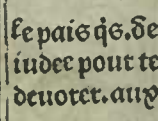 le pais q̃s. de
iudee pour te
deuorer. aux